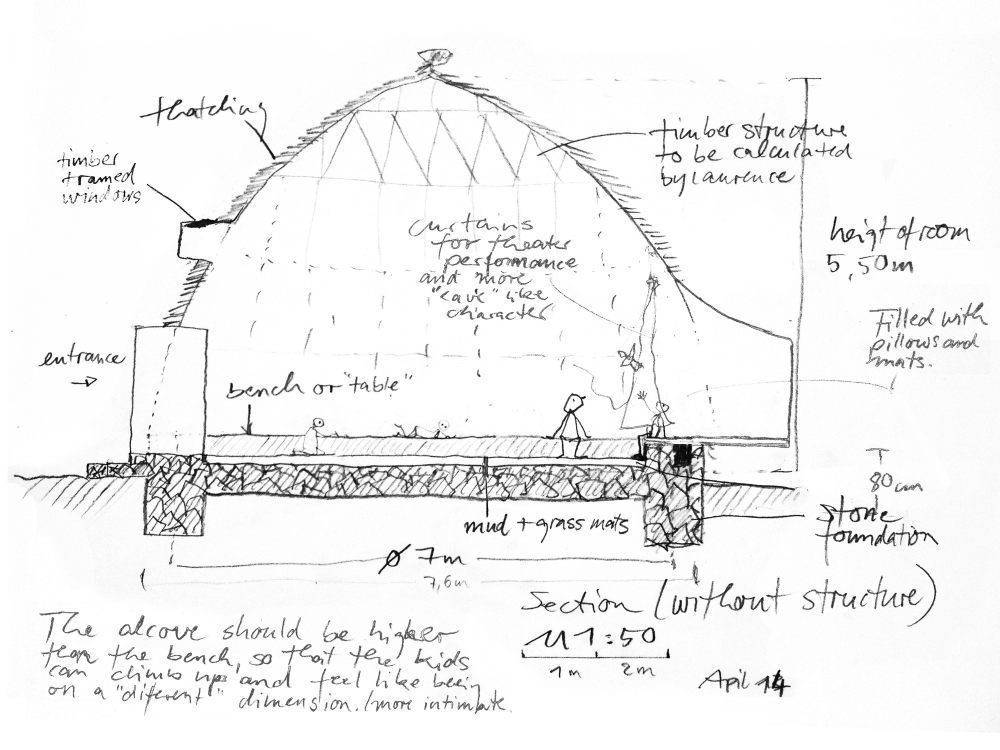 thatching
timber
framed
windows
timber structure
to be calculated
by laurence
curtains
for theater
performance
and more
"cave" like
character
heigt of room
5,50m
Filled with
pillows and
mats.
entrance
bench or "table"
80cm
stone
foundation
mud + grass mats
ø 7m
7,6m
Section (without structure)
M 1:50
1m 2m
April 14
The alcove should be higher
than the bench, so that the kids
can climb up and feel like being
on a "diferent" dimension./more intimate.